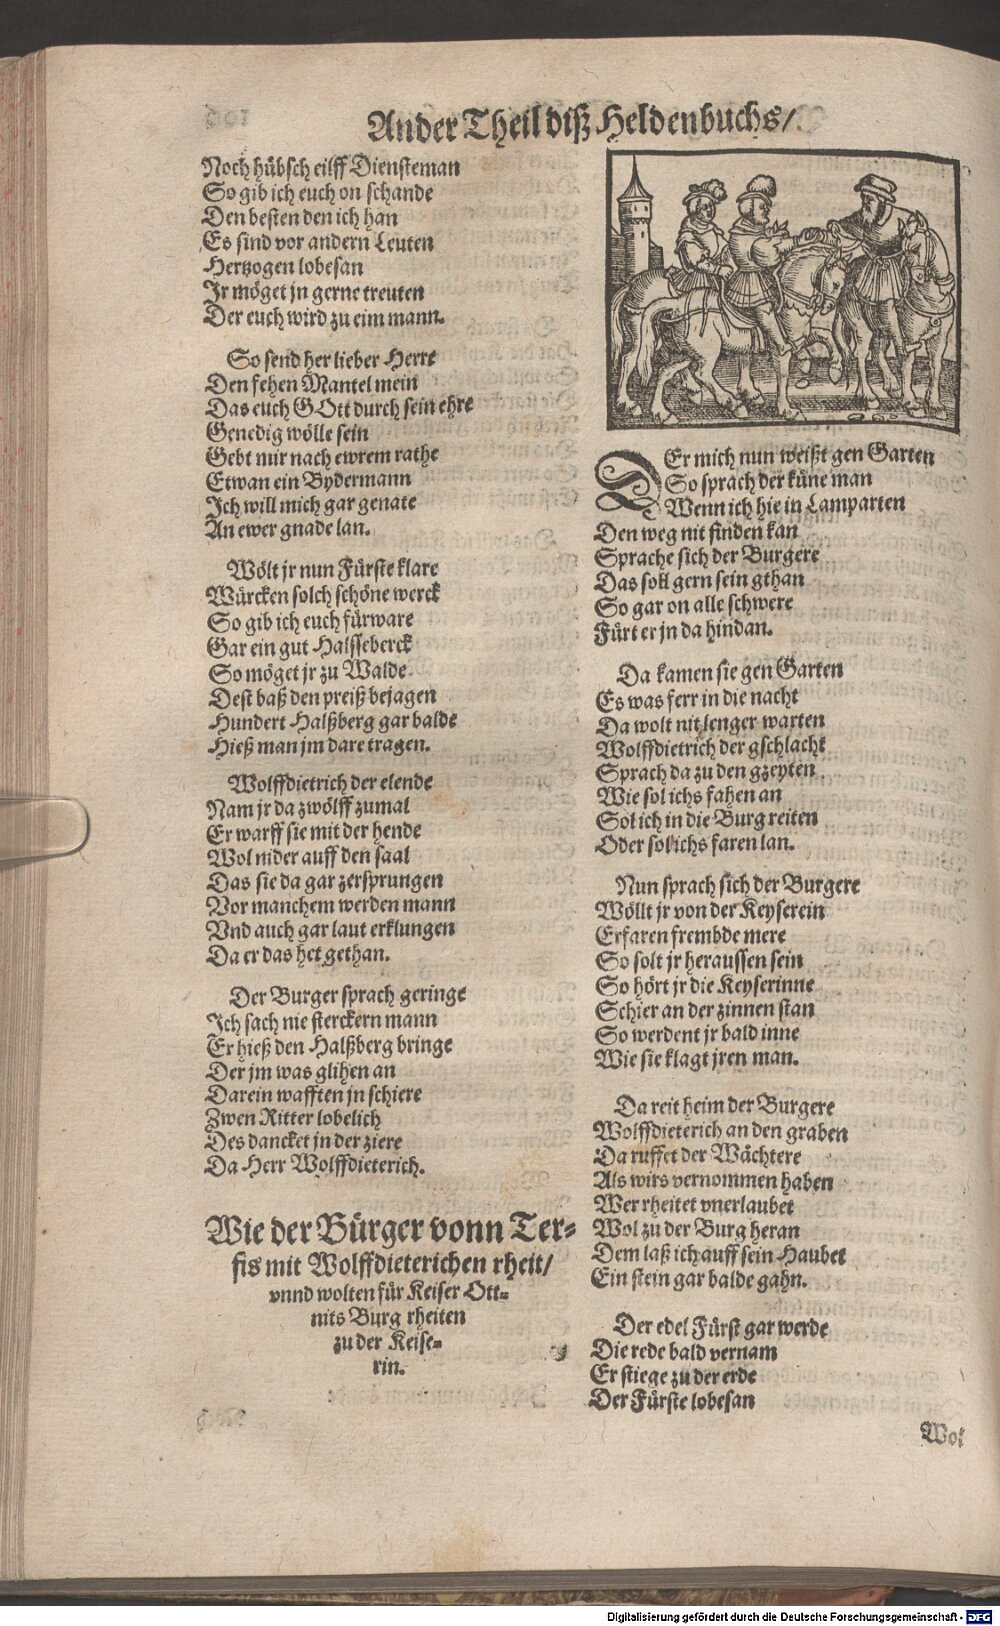 Ander Theil diß Heldenbuchs/
Noch hübsch eilff Diensteman
So gib ich euch on schande
Den besten den ich han
Es sind vor andern Leuten
Hertzogen lobesan
Ir möget jn gerne treuten
Der euch wird zu eim mann.
So send her lieber Herre
Den fehen Mantel mein
Das euch GOtt durch sein ehre
Genedig wölle sein
Gebt mir nach ewrem rathe
Etwan ein Bydermann
Ich will mich gar genate
An ewer gnade lan.
Wölt jr nun Fürste klare
Würcken solch schöne werck
So gib ich euch fürware
Gar ein gut Halsseberck
So möget jr zu Walde
Dest baß den preiß bejagen
Hundert Halßberg gar balde
Hieß man jm dare tragen.
Wolffdietrich der elende
Nam jr da zwölff zumal
Er warff sie mit der hende
Wol nider auff den saal
Das sie da gar zersprungen
Vor manchem werden mann
Vnd auch gar laut erklungen
Da er das het gethan.
Der Burger sprach geringe
Ich sach nie sterckern mann
Er hieß den Halßberg bringe
Der jm was glihen an
Darein wafften jn schiere
Zwen Ritter lobelich
Des dancket jn der ziere
Da Herr Wolffdieterich.
Wie der Bürger vonn Ter-
fis mit Wolffdieterichen rheit/
vnnd wolten für Keiser Ott-
nits Burg rheiten
zu der Keise-
rin.
DEr mich nun weißt gen Garten
So sprach der küne man
Wenn ich hie in Lamparten
Den weg nit finden kan
Sprache sich der Burgere
Das soll gern sein gthan
So gar on alle schwere
Fürt er jn da hindan.
Da kamen sie gen Garten
Es was ferr in die nacht
Da wolt nit lenger warten
Wolffdietrich der gschlacht
Sprach da zu den gzeyten
Wie sol ichs fahen an
Sol ich in die Burg reiten
Oder sol ichs faren lan.
Nun sprach sich der Burgere
Wöllt jr von der Keyserein
Erfaren frembde mere
So solt jr heraussen sein
So hört jr die Keyserinne
Schier an der zinnen stan
So werdent jr bald inne
Wie sie klagt jren man.
Da reit heim der Burgere
Wolffdieterich an den graben
Da ruffet der Wächtere
Als wirs vernommen haben
Wer rheitet vnerlaubet
Wol zu der Burg heran
Dem laß ich auff sein Haubet
Ein stein gar balde gahn.
Der edel Fürst gar werde
Die rede bald vernam
Er stiege zu der erde
Der Fürste lobesan
Wol
Digitalisierung gefördert durch die Deutsche Forschungsgemeinschaft - DFG